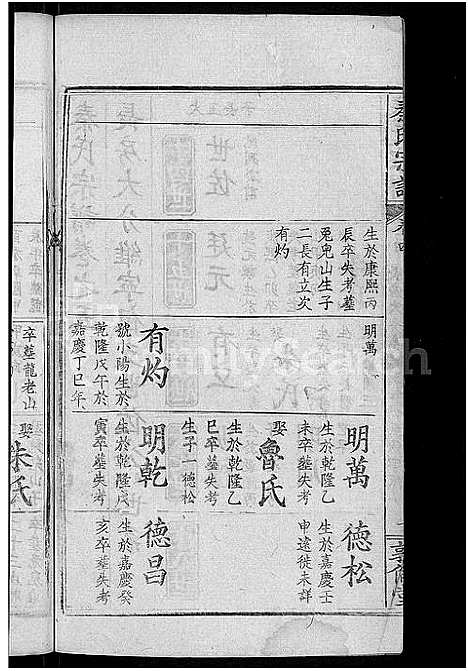 秦氏宗譜
生於康熙丙
辰卒失考墓
兎兒山生子
二長有立次
有灼
明萬
有灼
號小陽生於
乾隆戊午於
嘉慶丁巳年
明萬
生於乾隆乙
未卒墓失考
娶
魯氏
生於乾隆乙
巳卒墓失考
生子一德松
明乾
生於乾隆戊
寅卒墓失考
德松
生於嘉慶壬
申遠徙未詳
德昌
生於嘉慶癸
亥卒墓失考
卒墓龍老山
娶
朱氏
FamilySearch